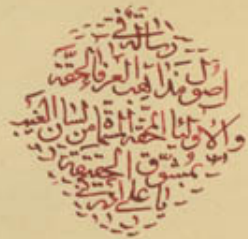 رسالة في
اصول مذاهب العرفاء الحقة
والاولياء الحقة المسماة من لسان الغيب
بمشوق الحقيقة
يا على ادركنى